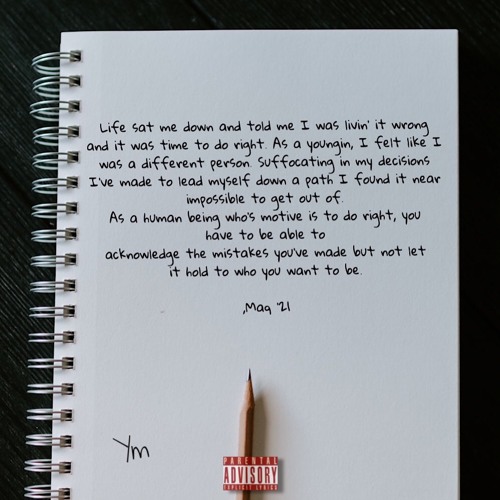 Life sat me down and told me I was livin' it wrong
and it was time to do right. As a youngin, I felt like I
was a different person. Suffocating in my decisions
I've made to lead myself down a path I found it near
impossible to get out of.
As a human being who's motive is to do right, you
have to be able to
acknowledge the mistakes you've made but not let
it hold to who you want to be.
,Maq '21
Ym
PARENTAL
ADVISORY
EXPLICIT LYRICS